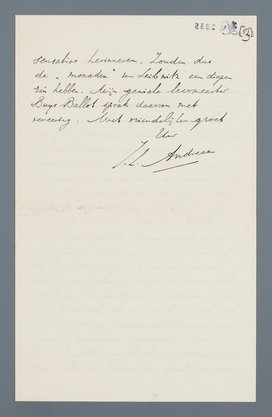 sensaties herinneren. Zouden dus
de „monaden" van Leibnitz een diepen
zin hebben. Mijn geniale leermeester
Buys Ballot sprak daarvan met
vereering. Met vriendelijken groet
Uw
Andreae